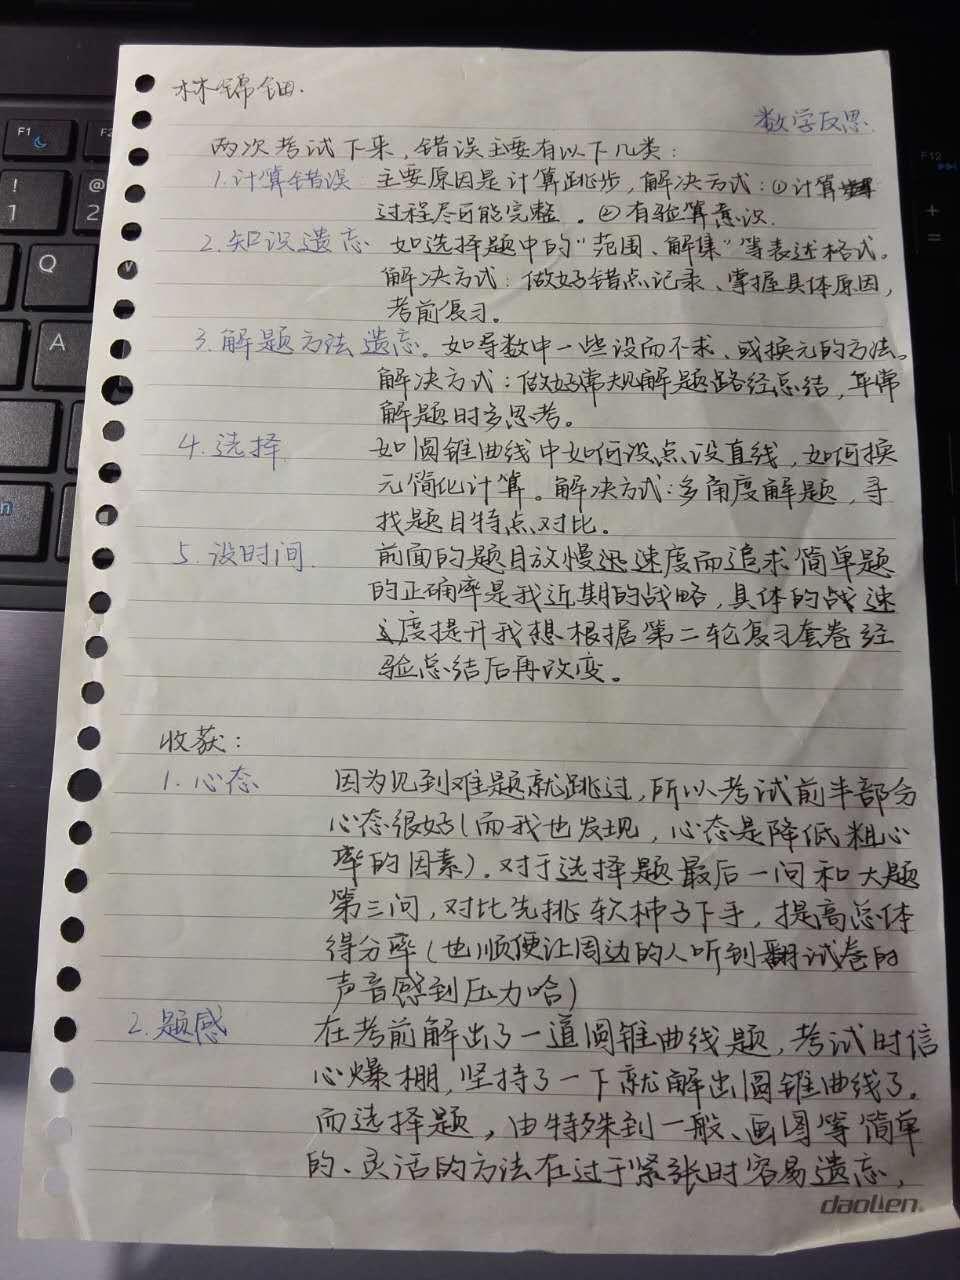 林锦钿.
数学反思
两次考试下来，错误主要有以下几类：
1.计算错误 主要原因是计算跳步，解决方式：①计算
过程尽可能完整。②有验算意识.
2.知识遗忘 如选择题中的“范围、解集”等表述格式。
解决方式：做好错点记录、掌握具体原因，
考前复习。
3.解题方法遗忘。如导数中一些设而不求、或换元的方法。
解决方式：做好常规解题路径总结，平常
解题时多思考。
4.选择 如圆锥曲线中如何设点设直线，如何换
元简化计算。解决方式：多角度解题，寻
找题目特点对比。
5.没时间. 前面的题目放慢迅速度而追求简单题
的正确率是我近期的战略，具体的战速
度提升我想根据第二轮复习套卷经
验总结后再改变。
收获：
1.心态 因为见到难题就跳过，所以考试前半部分
心态很好（而我也发现，心态是降低粗心
率的因素）.对于选择题最后一问和大题
第三问，对比先挑软柿子下手，提高总体
得分率（也顺便让周边的人听到翻试卷的
声音感到压力哈）
2.题感 在考前解出了一道圆锥曲线题，考试时信
心爆棚，坚持了一下就解出圆锥曲线了。
而选择题，由特殊到一般、画图等简单
的、灵活的方法在过于紧张时容易遗忘，
daolen
F1
F2
F12
!
1
@
2
Q
W
A
+
=